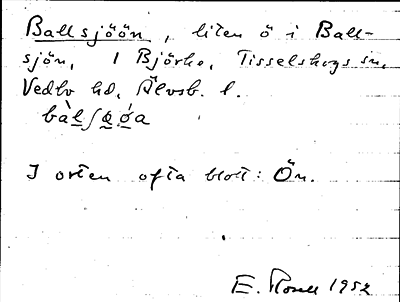 Ballsjöön, liten ö i Ball-
sjön, 1 Björko, Tisselskogs sn,
Vedbo hd, Älvsb. l.
I orten ofta blott: Ön.
E. 1952